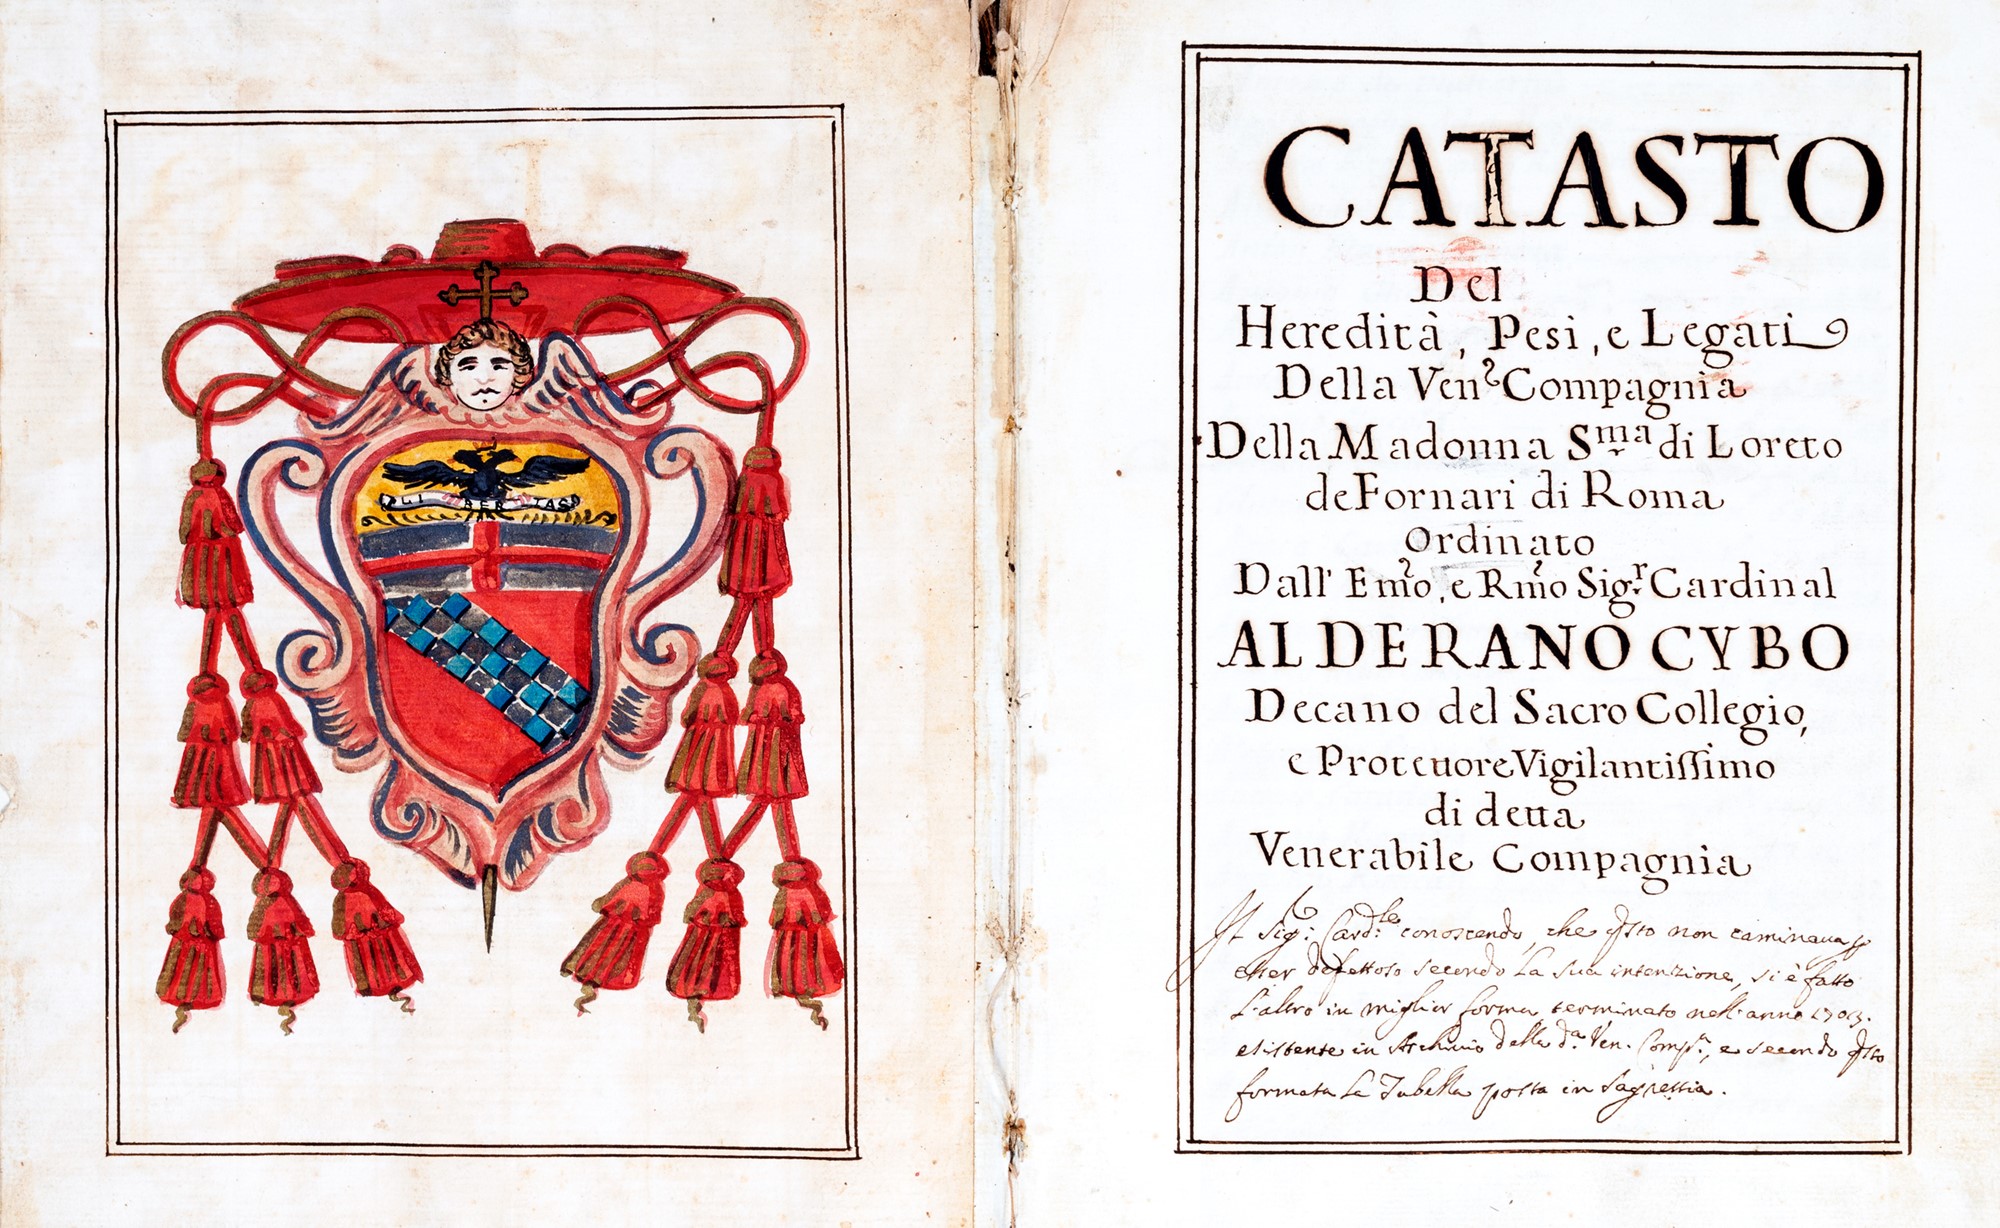 LIBERTAS
CATASTO
Del
Heredità, Pesi, e Legati
Della Venᵉ Compagnia
Della Madonna Sᵐᵃ di Loreto
de Fornari di Roma
Ordinato
Dall' Emo, e Rmo Sigʳ Cardinal
ALDERANO CYBO
Decano del Sacro Collegio,
e Protettore Vigilantissimo
di detta
Venerabile Compagnia
Il Sig: Cardˡᵉ conoscendo, che qsto non caminaua p
esser difettoso secondo la sua intenzione, si è fatto
l'altro in miglior forma terminato nell'anno 1703.
esistente in Archivio della dᵃ Ven. Compᵃ, e secondo qsto
formata la Tabella posta in Sagrestia.